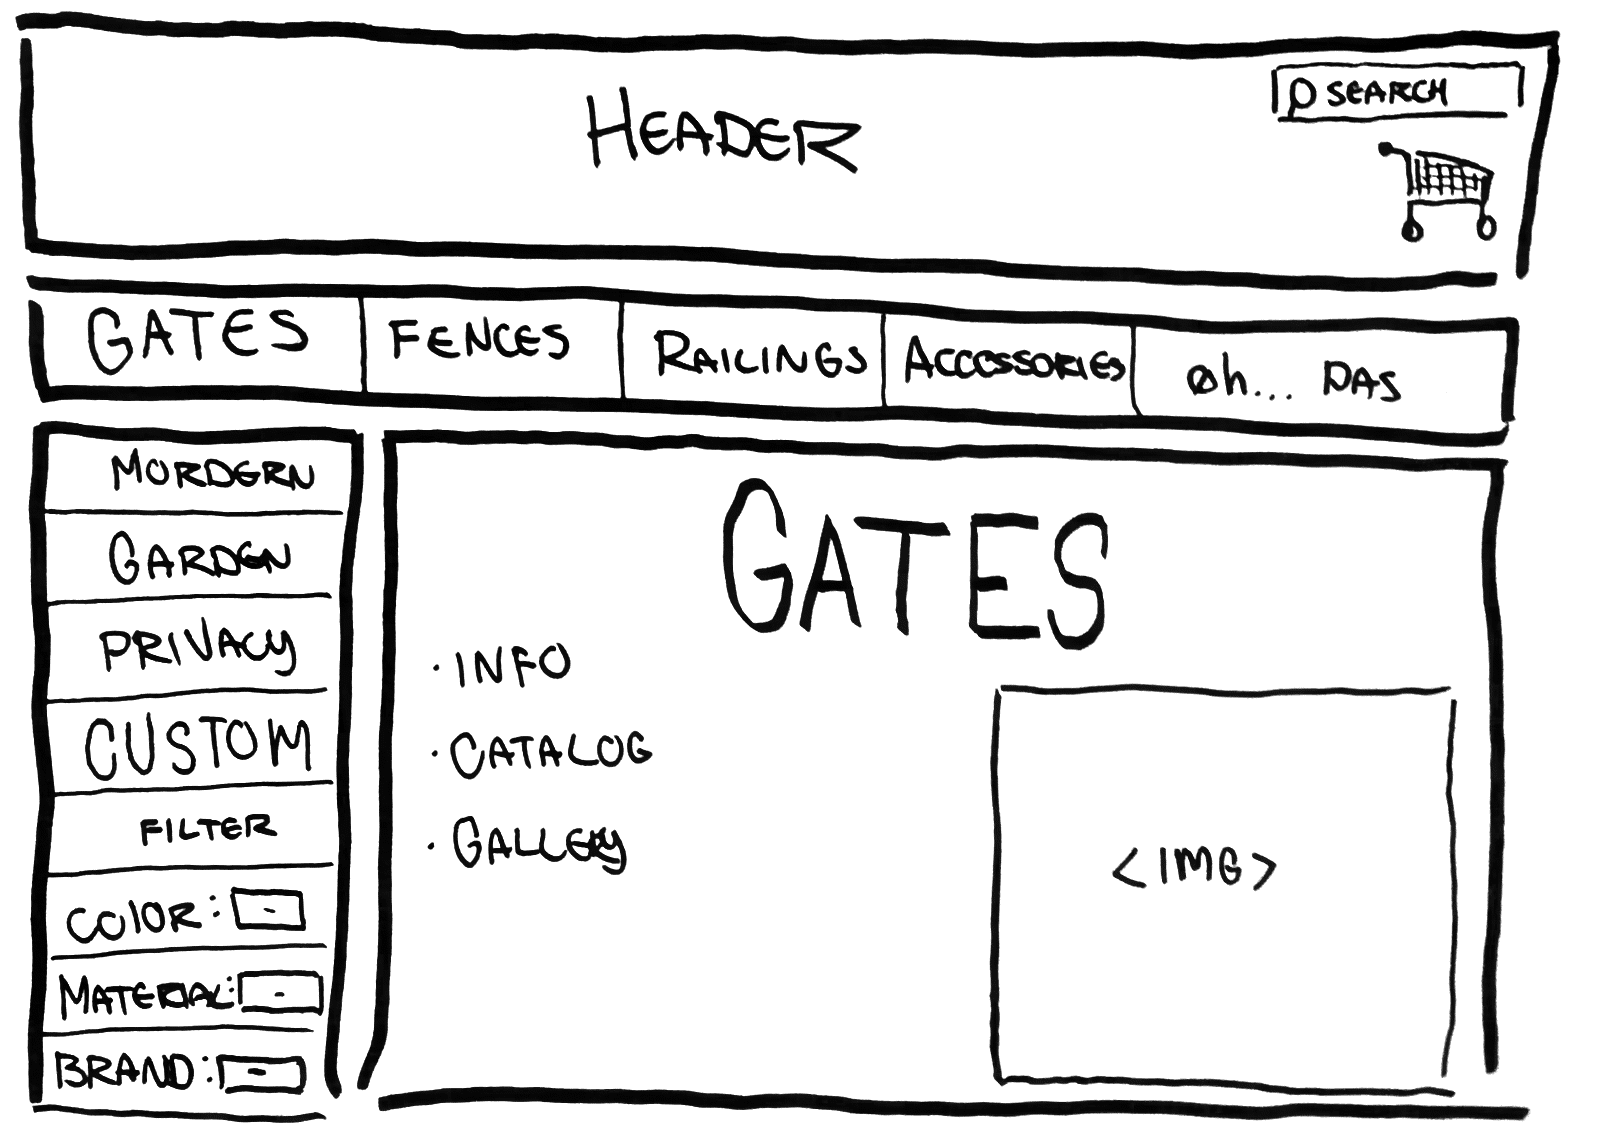 HEADER
SEARCH
GATES FENCES RAILINGS ACCCSSORIES Øh... DAS
MORDERN
GARDEN
PRIVACY
CUSTOM
FILTER
COLOR: -
MATERIAL: -
BRAND: -
GATES
· INFO
· CATALOG
· GALLERY
<IMG>